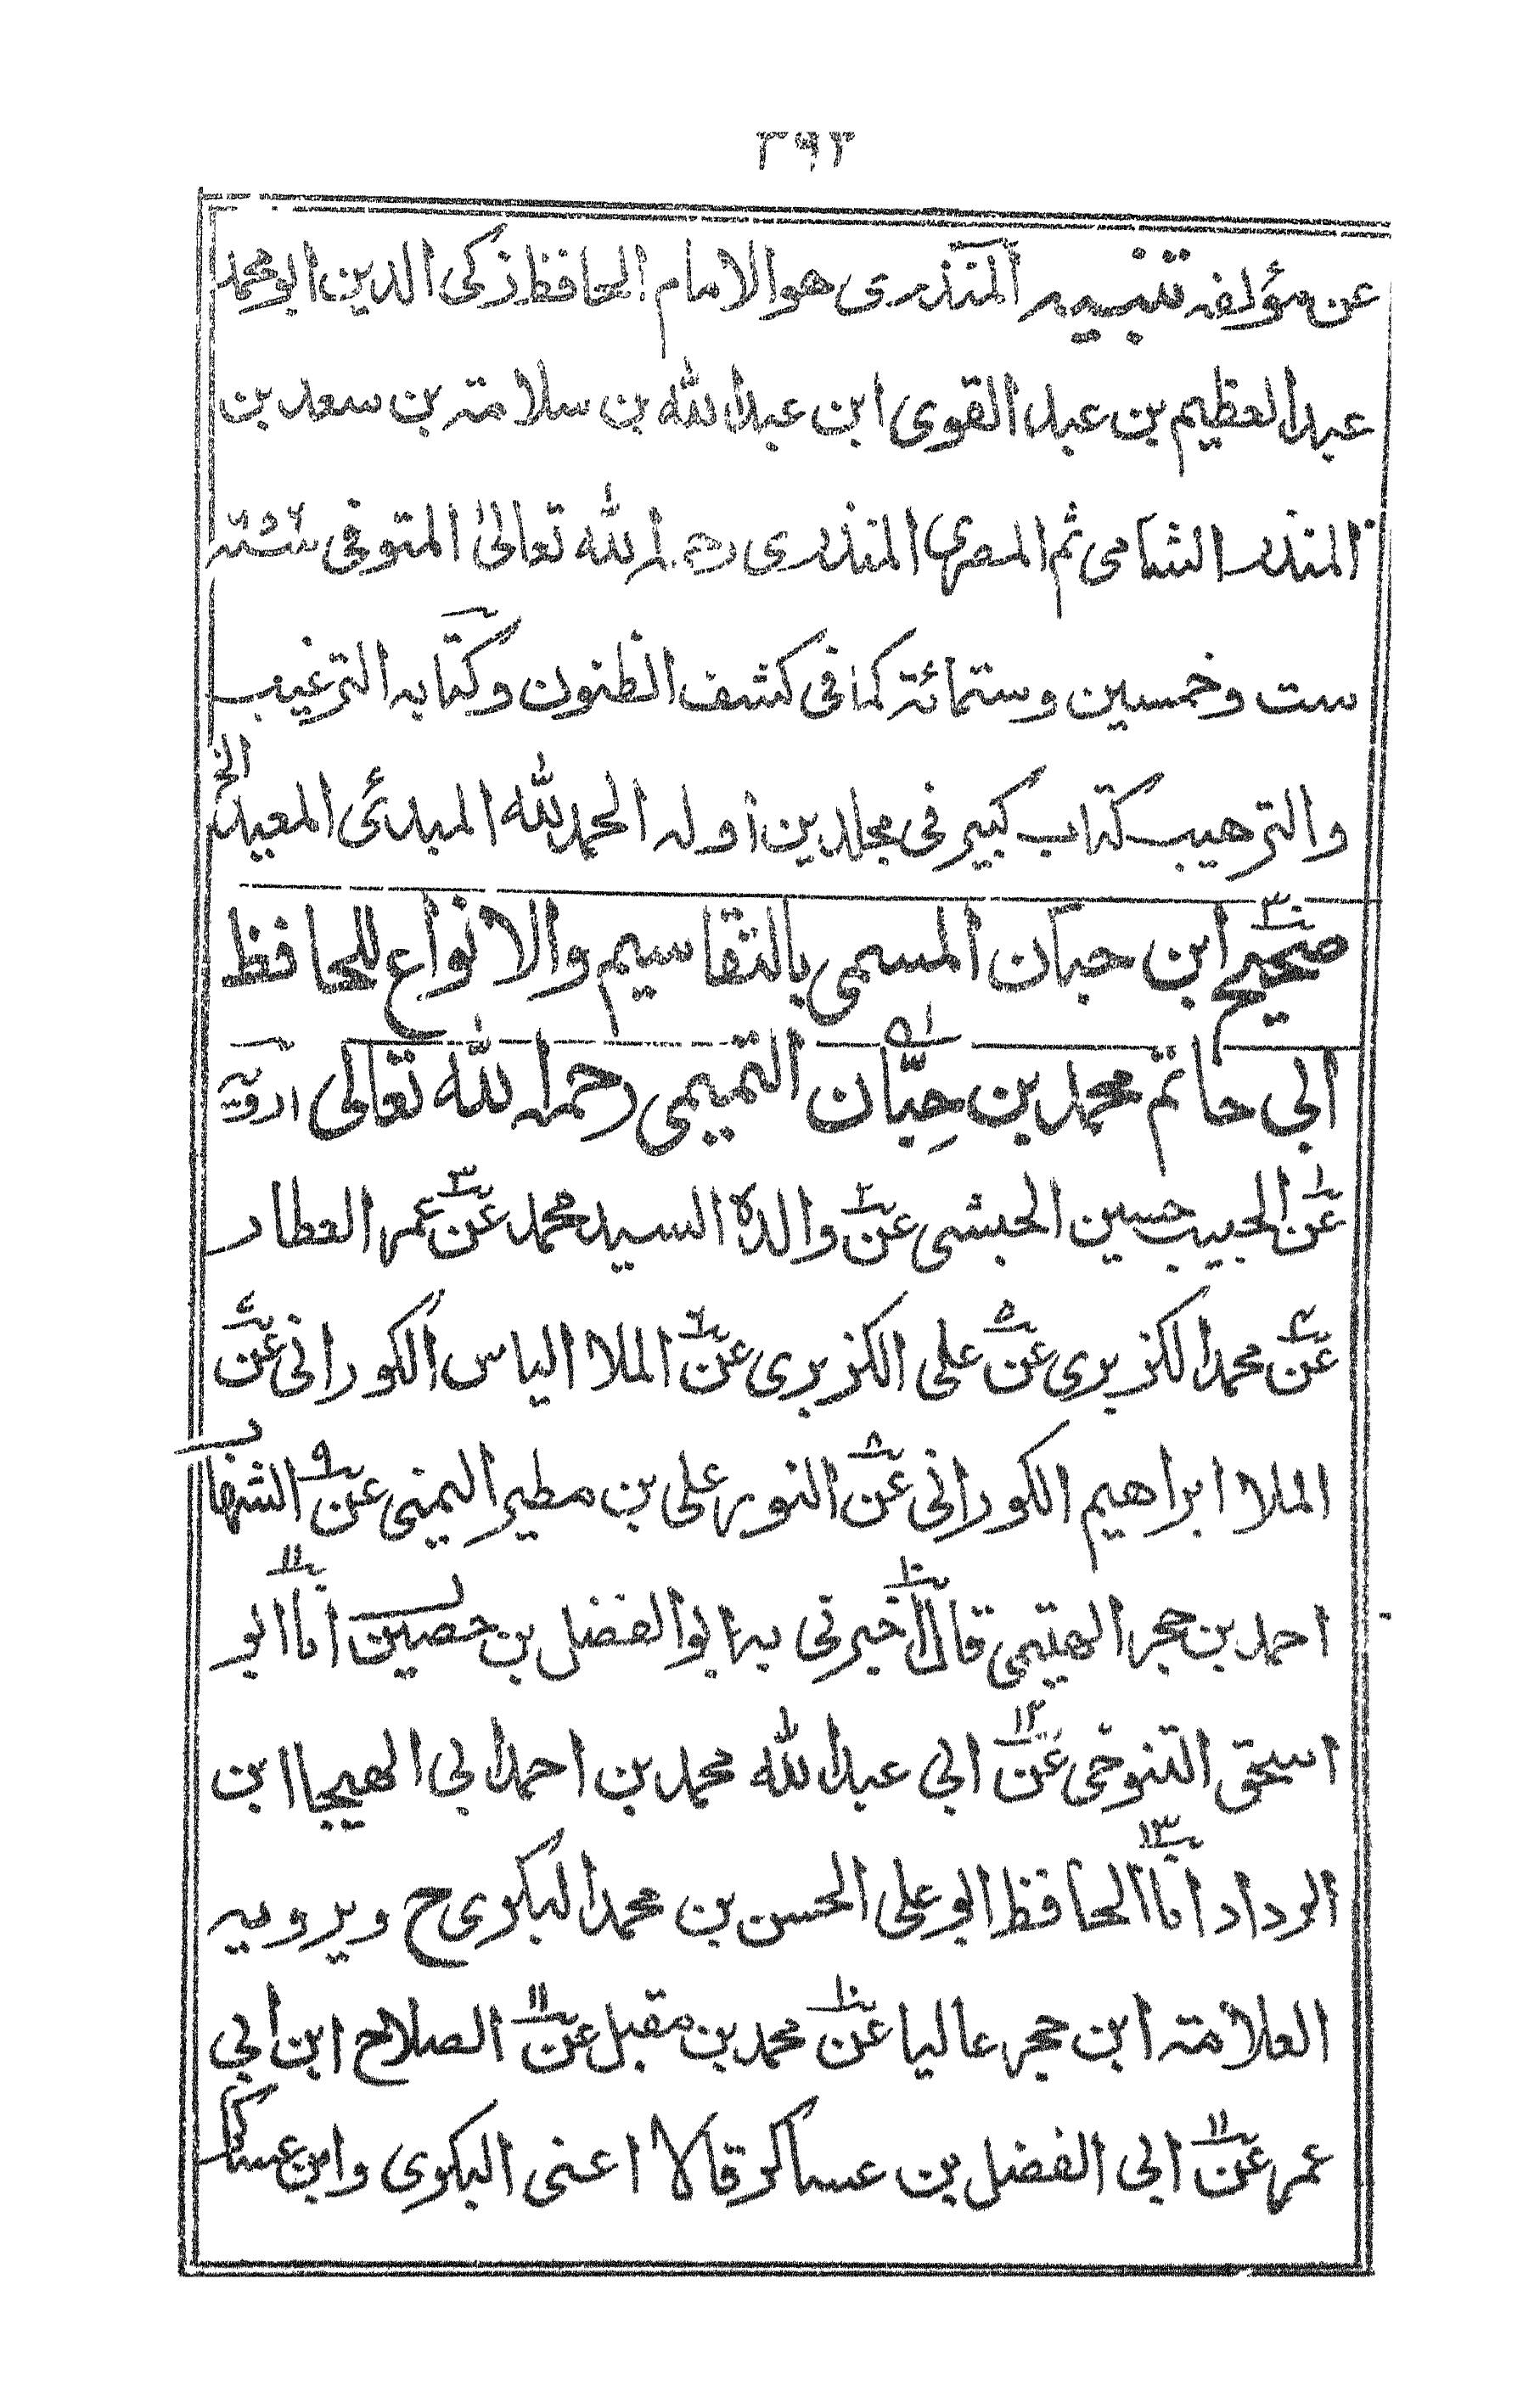 ٣٩٢
عن مؤلفه تنبيه المنذرى هو الامام الحافظ زكى الدين ابو محمد
عبد العظيم بن عبد القوى ابن عبد الله بن سلامته بن سعد بن
المنذر الشامى ثم المصرى المنذرى رحمه الله تعالىٰ المتوفى ٦٥٦سنه
ست وخمسين وستمائة كما فى كشف الظنون وكتابه الترغيب
والترهيب كتاب كبير فى مجلدين اوله الحمد لله المبدئ المعيد الخ
صحيح ابن حبان المسمى بالتقاسيم والانواع للحافظ
ابى حاتم محمد بن حِبَّان التميمى رحمه الله تعالى ارويه
عن الحبيب حسين الحبشى عن والده السيد محمد عن عمر العطار
عن محمد الكزبرى عن على الكزبرى عن الملا الياس الكورانى عن
الملا ابراهيم الكورانى عن النور على بن مطير اليمنى عن الشهاب
احمد بن حجر الهيتمى قال اخبرنى به ابو الفضل بن حصين انا ابو
اسحق التنوخى عن ابى عبد الله محمد بن احمد ابى الهيجا ابن
الرداد انا الحافظ ابو على الحسن بن محمد البكرى ح ويرويه
العلامته ابن حجر عاليا عن محمد بن مقبل عن الصلاح ابن ابى
عمر عن ابى الفضل بن عساكر قالا اعنى البكرى وابن عساكر